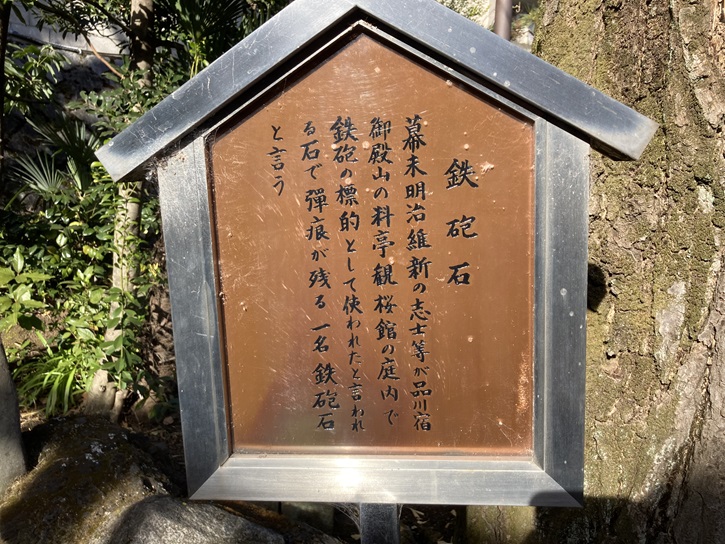 鉄砲石
幕末明治維新の志士等が品川宿
御殿山の料亭観桜館の庭内で
鉄砲の標的として使われたと言われ
る石で弾痕が残る 一名鉄砲石
と言う